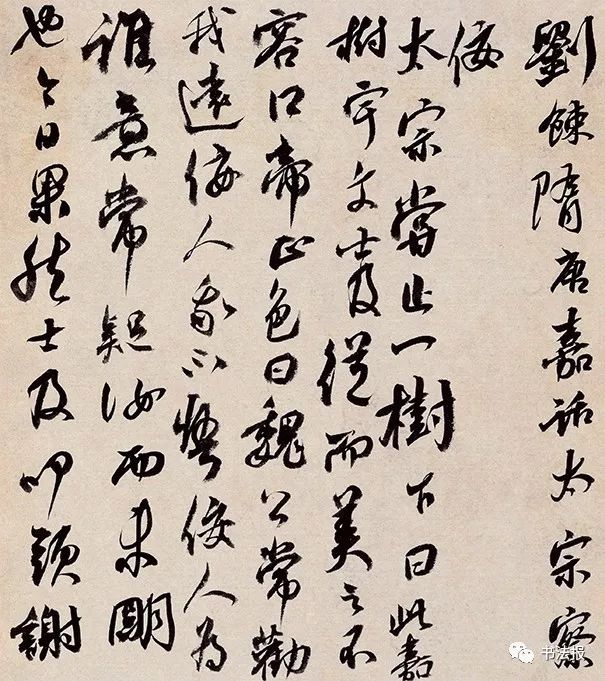 劉餗隋唐嘉話太宗察
佞
太宗嘗止一樹下曰此嘉
樹宇文士及從而美之不
容口帝正色曰魏公常勸
我遠佞人我不悟佞人為
誰意常疑汝而未明
也今日果然士及叩頭謝
书法报